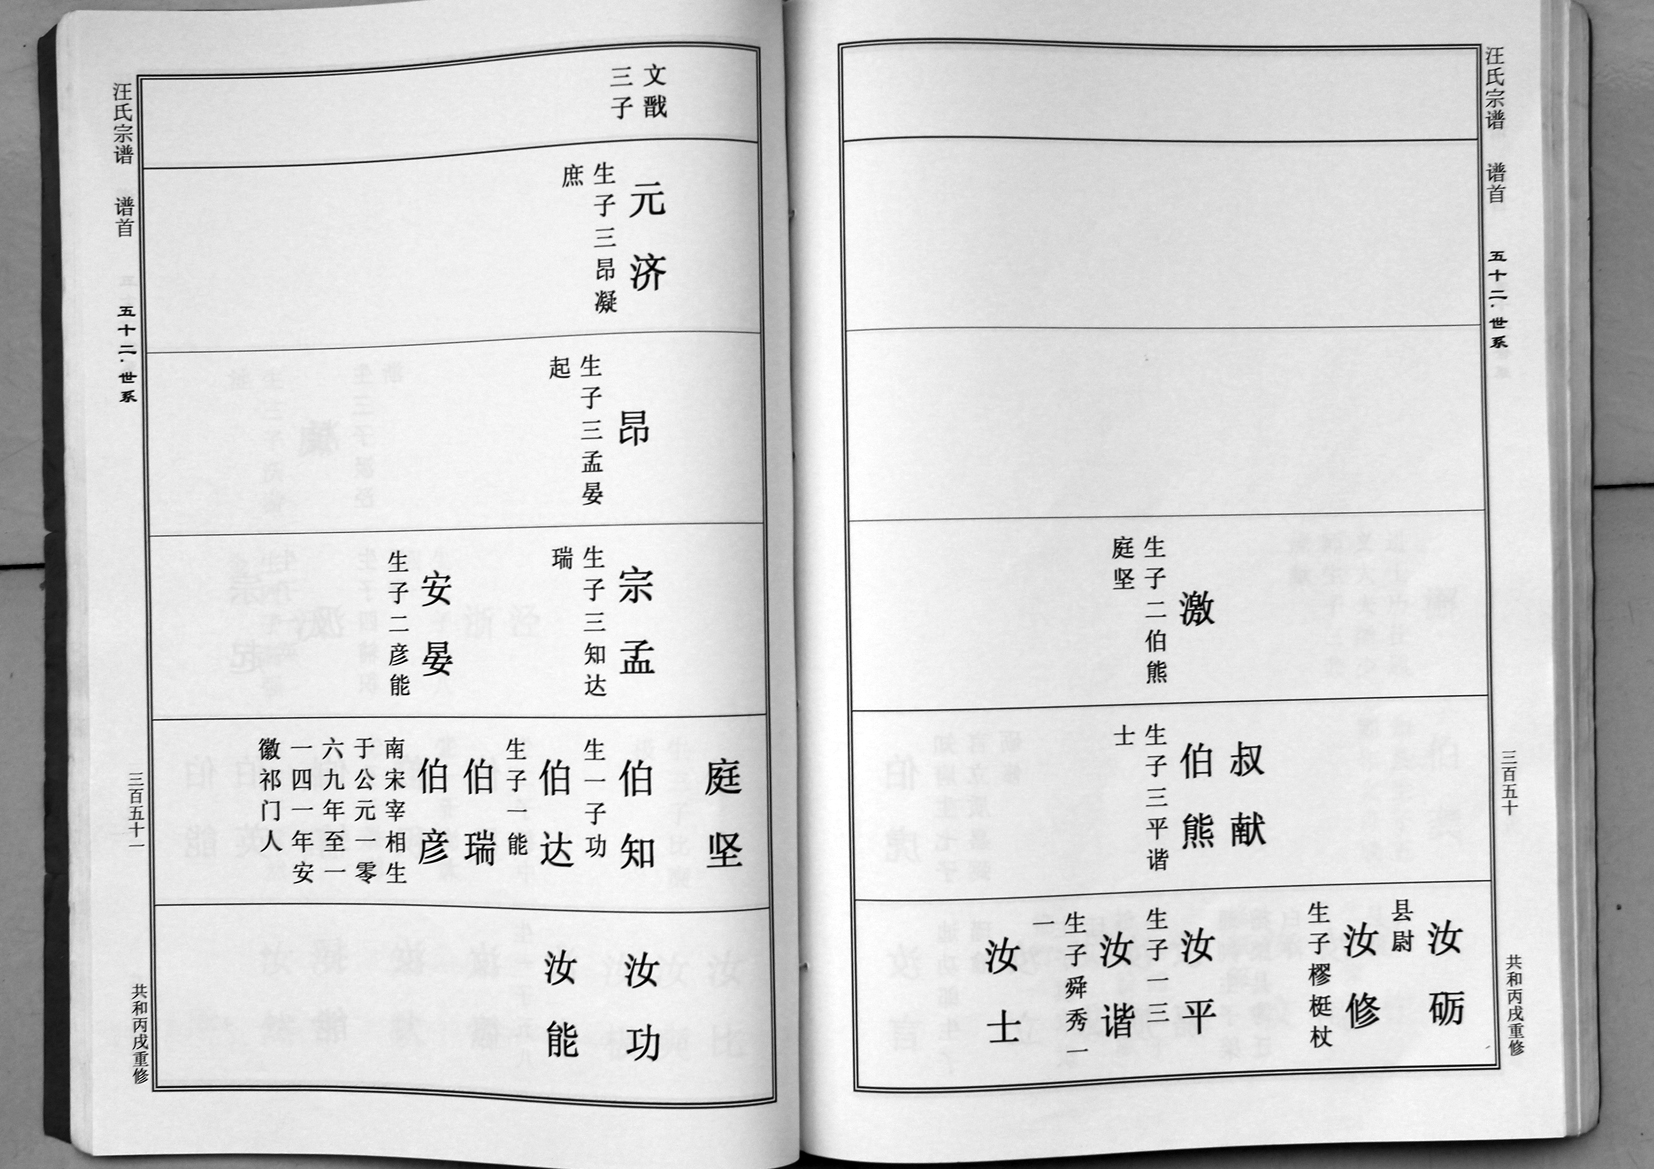 汪氏宗谱 谱首 五十二·世系 三百五十 共和丙戌重修
激
生子二伯熊
庭坚
叔献
伯熊
生子三平谐
士
汝砺
县尉
汝修
生子樛梃杖
汝平
生子一二三
汝谐
生子舜秀一
一
汝士
文戬
三子
元济
生子三昂凝
庶
昂
生子三孟晏
起
宗孟
生子三知达
瑞
安晏
生子二彦能
庭坚
伯知
生一子功
伯达
生子一能
伯瑞
伯彦
南宋宰相生
于公元一零
六九年至一
一四一年安
徽祁门人
汝功
汝能
汪氏宗谱 谱首 五十二·世系 三百五十一 共和丙戌重修